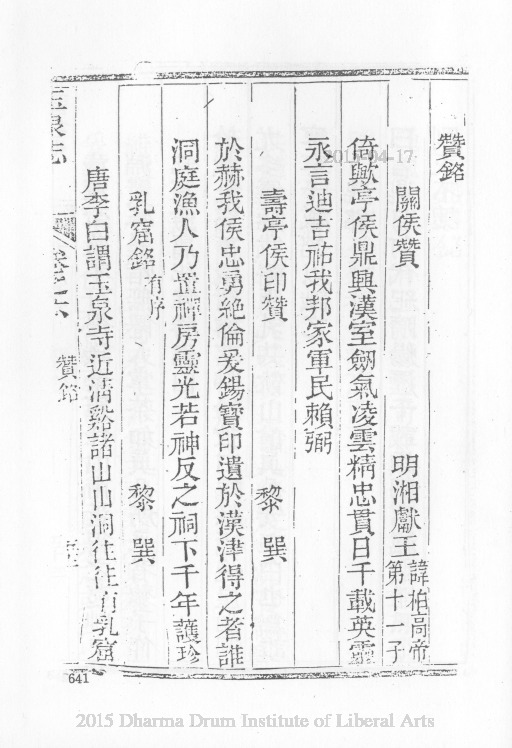 贊銘
關侯贊 明湘獻王 諱柏高帝第十一子
倚歟亭侯鼎興漢室劒氣凌雲精忠貫日千載英靈
永言迪吉祐我邦家軍民賴弼
壽亭侯印贊 黎巽
於赫我侯忠勇絶倫爰錫寶印遺於漢津得之者誰
洞庭漁人乃置禪房靈光若神反之祠下千年護珍
乳窟銘 有序 黎巽
唐李白謂玉泉寺近清谿諸山山洞往往有乳窟
玉泉志 卷之六 贊銘
641
2015-04-17
2015 Dharma Drum Institute of Liberal Arts